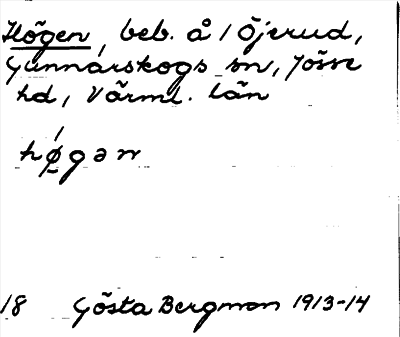 Högen, beb. å 1 Öjerud,
Gunnarskogs sn, Jösse
hd, Värml. län
hǿ̠gən
18 Gösta Bergman 1913-14